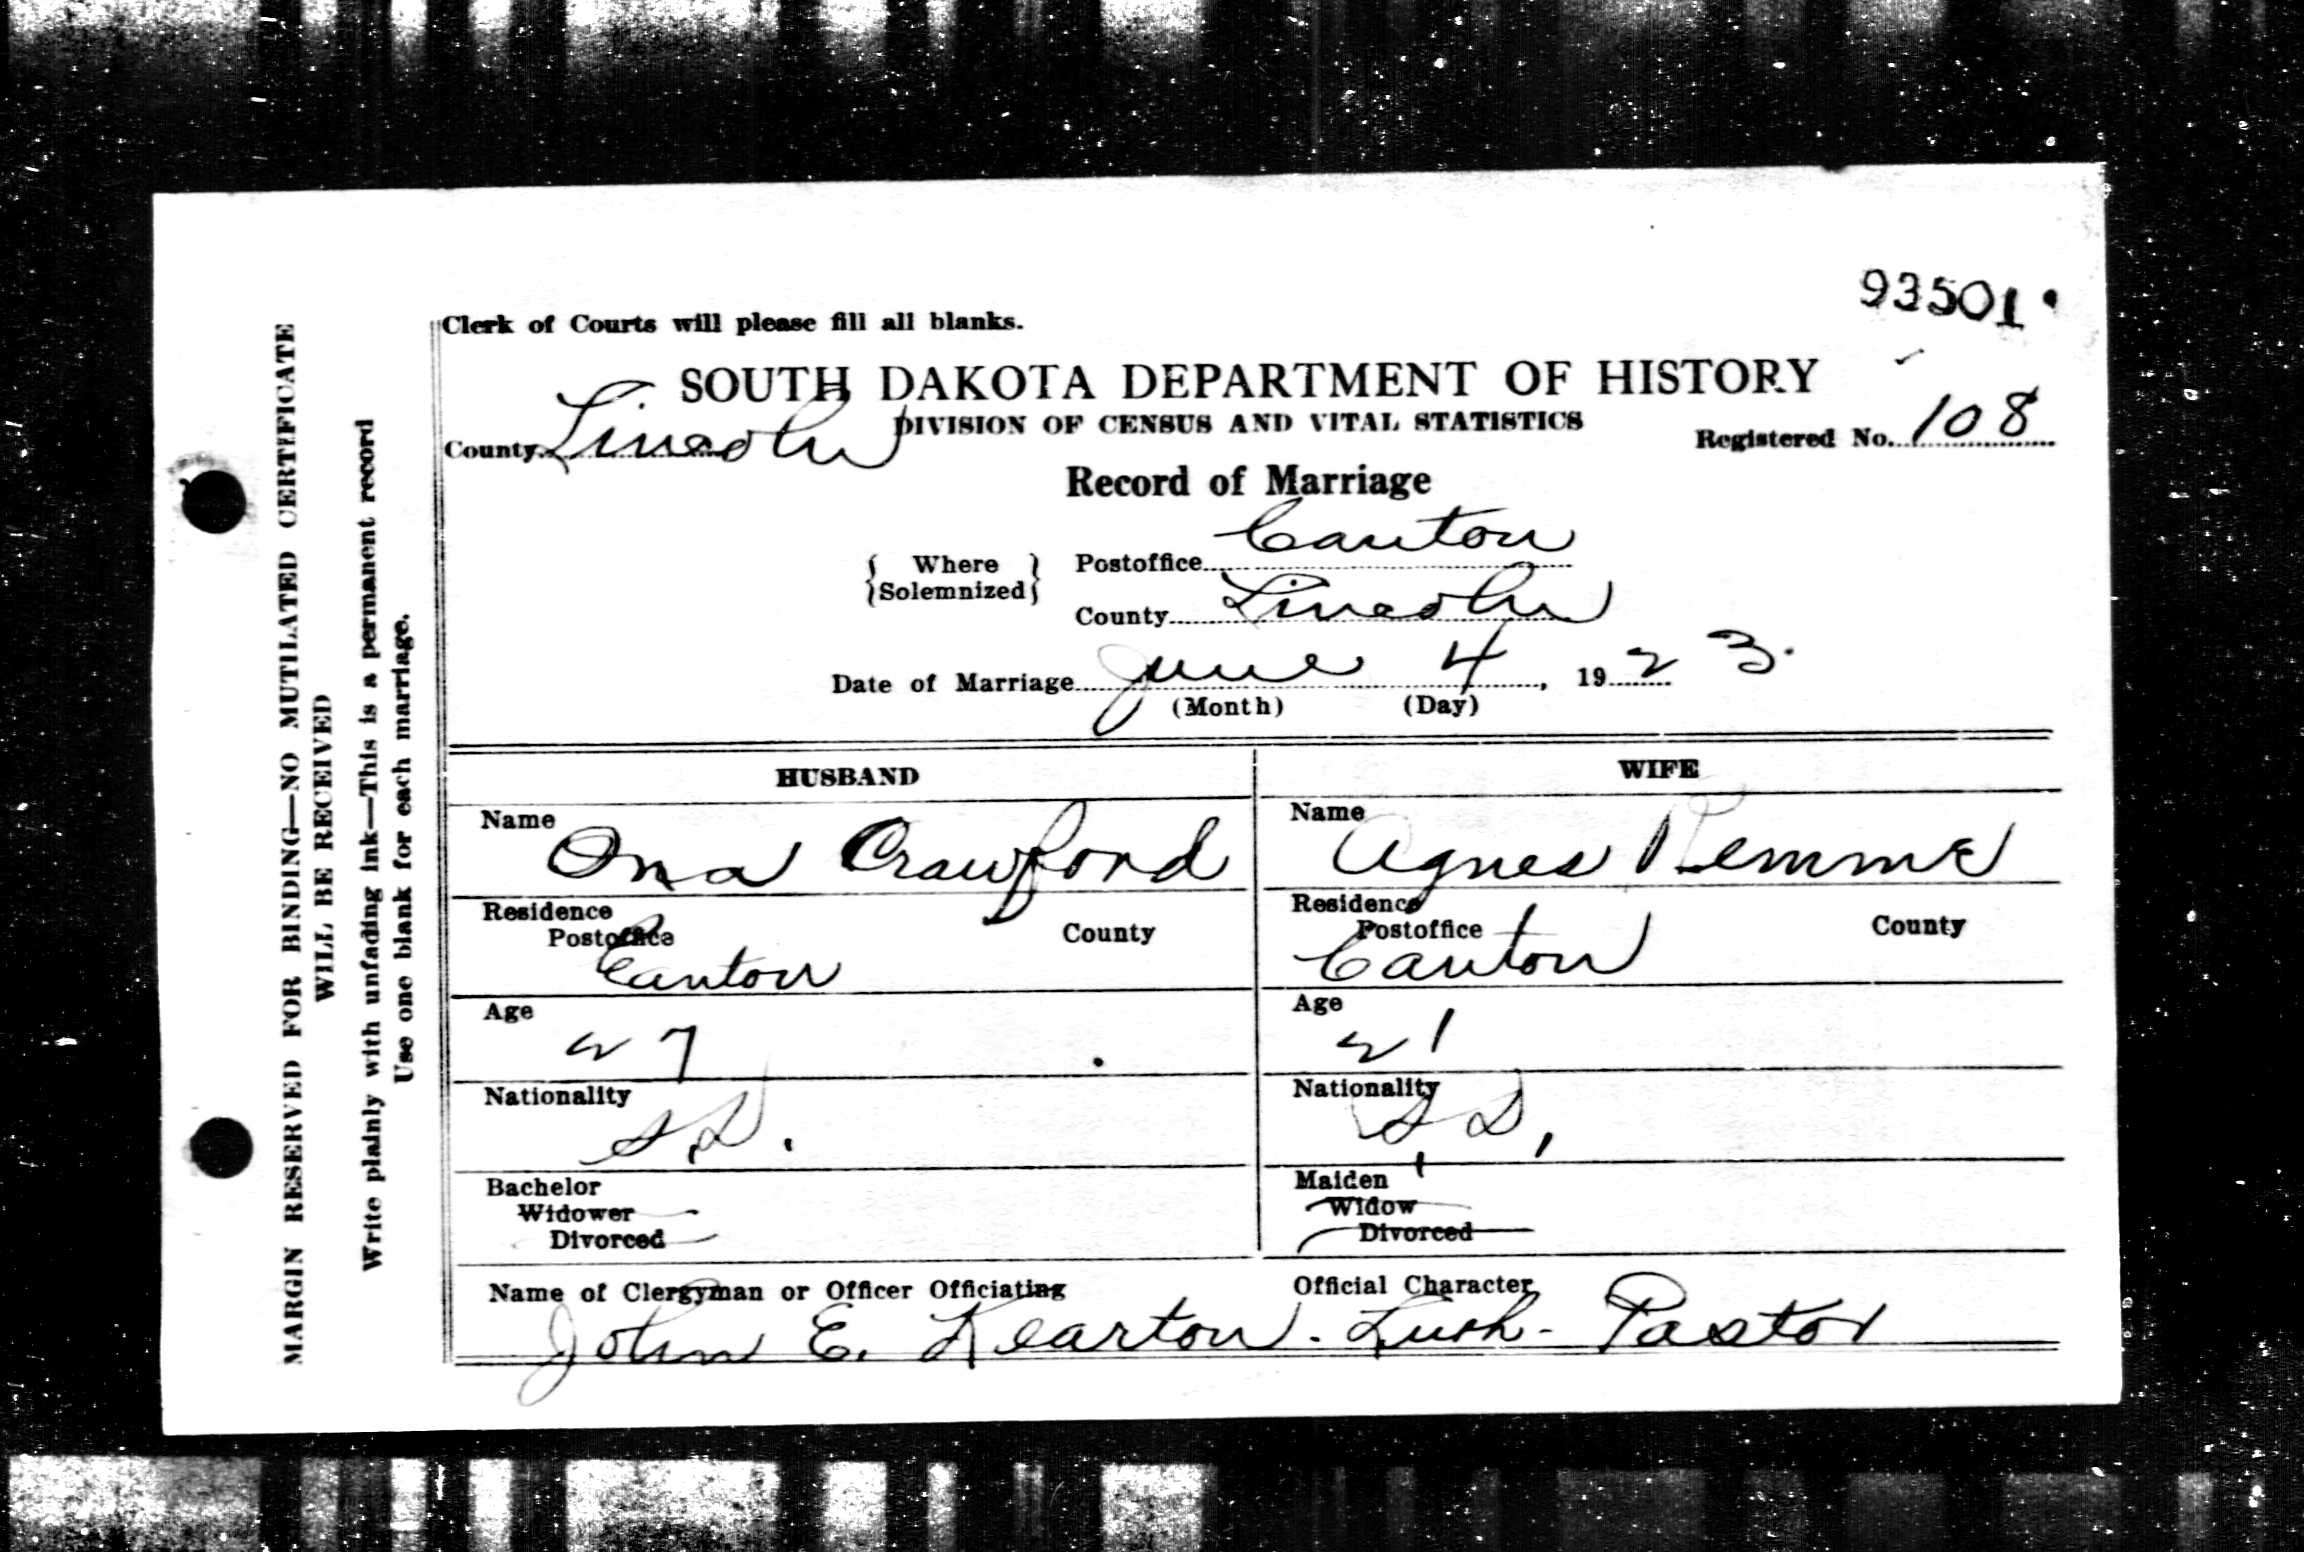 93501
Clerk of Courts will please fill all blanks.
SOUTH DAKOTA DEPARTMENT OF HISTORY
DIVISION OF CENSUS AND VITAL STATISTICS
County Lincoln
Registered No. 108
Record of Marriage
Where Solemnized
Postoffice Canton
County Lincoln
Date of Marriage June 4, 1923.
(Month) (Day)
HUSBAND
Name
Crawford
Residence
Postoffice County
Canton
Age
27
Nationality
S.D.
Bachelor
Widower
Divorced
WIFE
Name
Agnes Remme
Residence
Postoffice County
Canton
Age
21
Nationality
S D,
Maiden
Widow
Divorced
Name of Clergyman or Officer Officiating
John E. Kearton.
Official Character
Luth- Pastor
MARGIN RESERVED FOR BINDING—NO MUTILATED CERTIFICATE
WILL BE RECEIVED
Write plainly with unfading ink—This is a permanent record
Use one blank for each marriage.